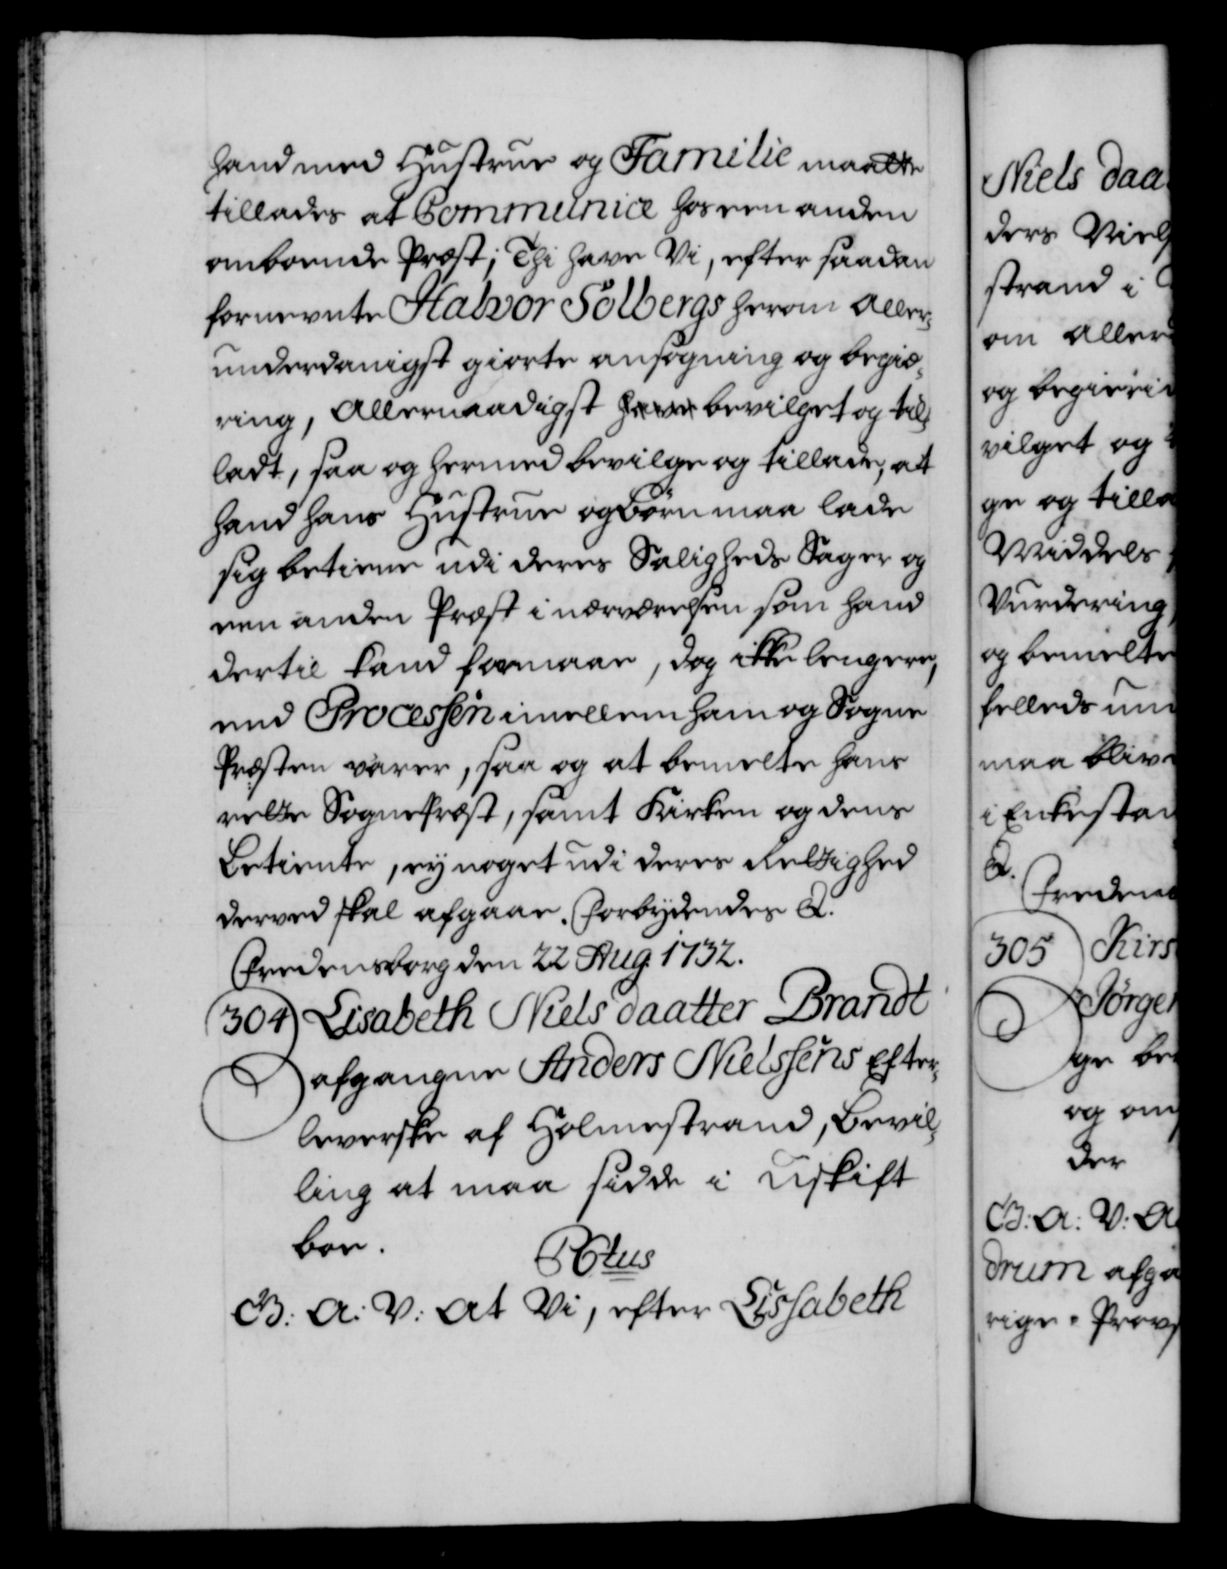 hand med Hustrue og Familie maatte
tillades at Communice hos een anden
omboende Præst; Thi have Vi, efter saadan
fornevnte Halvor Solbergs herom Aller-
underdanigst giorte ansøgning og begiæ-
ring, Allernaadigst have bevilget og til-
ladt, saa og hermed bevilge og tillade, at
hand hans Hustrue og Børn maa lade
sig betiene udi deres Saligheds Sager og
een anden Præst i nærværelsen som hand
dertil kand formaae, dog ikke lengere,
end Processen imellem ham og Sogne
Præsten varer, saa og at bemelte hans
rette SognePræst, samt Kirken og dens
Betiente, ey noget udi deres Rettighed
derved skal afgaae. Forbydendes &.
Fredensborg den 22 Aug. 1732.
304 Lisabeth Niels daatter Brandt
afgangne Anders Nielssens Efter-
leverske af Holmestrand, Bevil-
ling at maa sidde i Uskift
boe.
Rtus
G: A: V: At Vi, efter Lissabeth
Niels daa
ders Niels
strand i
om Allerd
og begierin
vilget og
ge og tilla
Middels
Vurdering,
og bemelte
felleds um
maa blive
i Enkestan
&.
Fredens
305 Kirs
Jørgen
ge be
og om
der
G: A: V: A
drum afga
rige Provs